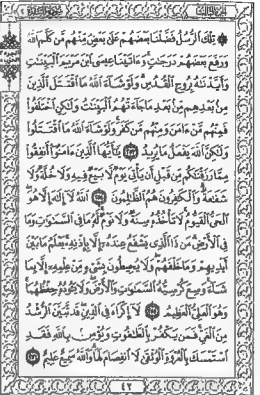 الجزء الثالث سورة البقرة
۞ تِلْكَ ٱلرُّسُلُ فَضَّلْنَا بَعْضَهُمْ عَلَىٰ بَعْضٍ مِّنْهُم مَّن كَلَّمَ ٱللَّهُ
وَرَفَعَ بَعْضَهُمْ دَرَجَٰتٍ وَءَاتَيْنَا عِيسَى ٱبْنَ مَرْيَمَ ٱلْبَيِّنَٰتِ
وَأَيَّدْنَٰهُ بِرُوحِ ٱلْقُدُسِ وَلَوْ شَآءَ ٱللَّهُ مَا ٱقْتَتَلَ ٱلَّذِينَ
مِنۢ بَعْدِهِم مِّنۢ بَعْدِ مَا جَآءَتْهُمُ ٱلْبَيِّنَٰتُ وَلَٰكِنِ ٱخْتَلَفُوا۟
فَمِنْهُم مَّنْ ءَامَنَ وَمِنْهُم مَّن كَفَرَ وَلَوْ شَآءَ ٱللَّهُ مَا ٱقْتَتَلُوا۟
وَلَٰكِنَّ ٱللَّهَ يَفْعَلُ مَا يُرِيدُ ٢٥٣ يَٰٓأَيُّهَا ٱلَّذِينَ ءَامَنُوٓا۟ أَنفِقُوا۟
مِمَّا رَزَقْنَٰكُم مِّن قَبْلِ أَن يَأْتِىَ يَوْمٌ لَّا بَيْعٌ فِيهِ وَلَا خُلَّةٌ وَلَا
شَفَٰعَةٌ وَٱلْكَٰفِرُونَ هُمُ ٱلظَّٰلِمُونَ ٢٥٤ ٱللَّهُ لَآ إِلَٰهَ إِلَّا هُوَ
ٱلْحَىُّ ٱلْقَيُّومُ لَا تَأْخُذُهُۥ سِنَةٌ وَلَا نَوْمٌ لَّهُۥ مَا فِى ٱلسَّمَٰوَٰتِ وَمَا
فِى ٱلْأَرْضِ مَن ذَا ٱلَّذِى يَشْفَعُ عِندَهُۥٓ إِلَّا بِإِذْنِهِۦ يَعْلَمُ مَا بَيْنَ
أَيْدِيهِمْ وَمَا خَلْفَهُمْ وَلَا يُحِيطُونَ بِشَىْءٍ مِّنْ عِلْمِهِۦٓ إِلَّا بِمَا
شَآءَ وَسِعَ كُرْسِيُّهُ ٱلسَّمَٰوَٰتِ وَٱلْأَرْضَ وَلَا يَـُٔودُهُۥ حِفْظُهُمَا
وَهُوَ ٱلْعَلِىُّ ٱلْعَظِيمُ ٢٥٥ لَآ إِكْرَاهَ فِى ٱلدِّينِ قَد تَّبَيَّنَ ٱلرُّشْدُ
مِنَ ٱلْغَىِّ فَمَن يَكْفُرْ بِٱلطَّٰغُوتِ وَيُؤْمِنۢ بِٱللَّهِ فَقَدِ
ٱسْتَمْسَكَ بِٱلْعُرْوَةِ ٱلْوُثْقَىٰ لَا ٱنفِصَامَ لَهَا وَٱللَّهُ سَمِيعٌ عَلِيمٌ ٢٥٦
٤٢